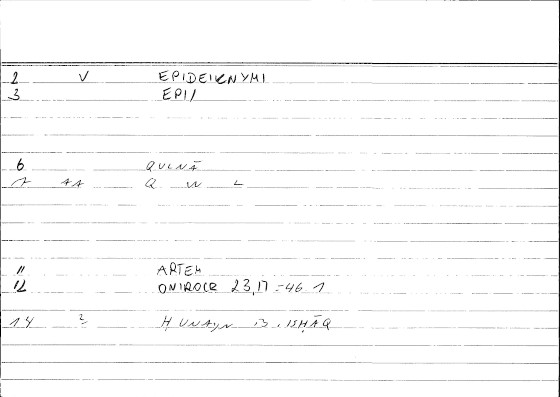 2 V EPIDEIKNYMI
3 EPI/
6 QULNĀ
7 AA Q W L
11 ARTEM
12 ONIROCR 23,17 = 46 1
14 2 ḤUNAYN B. ISḤĀQ